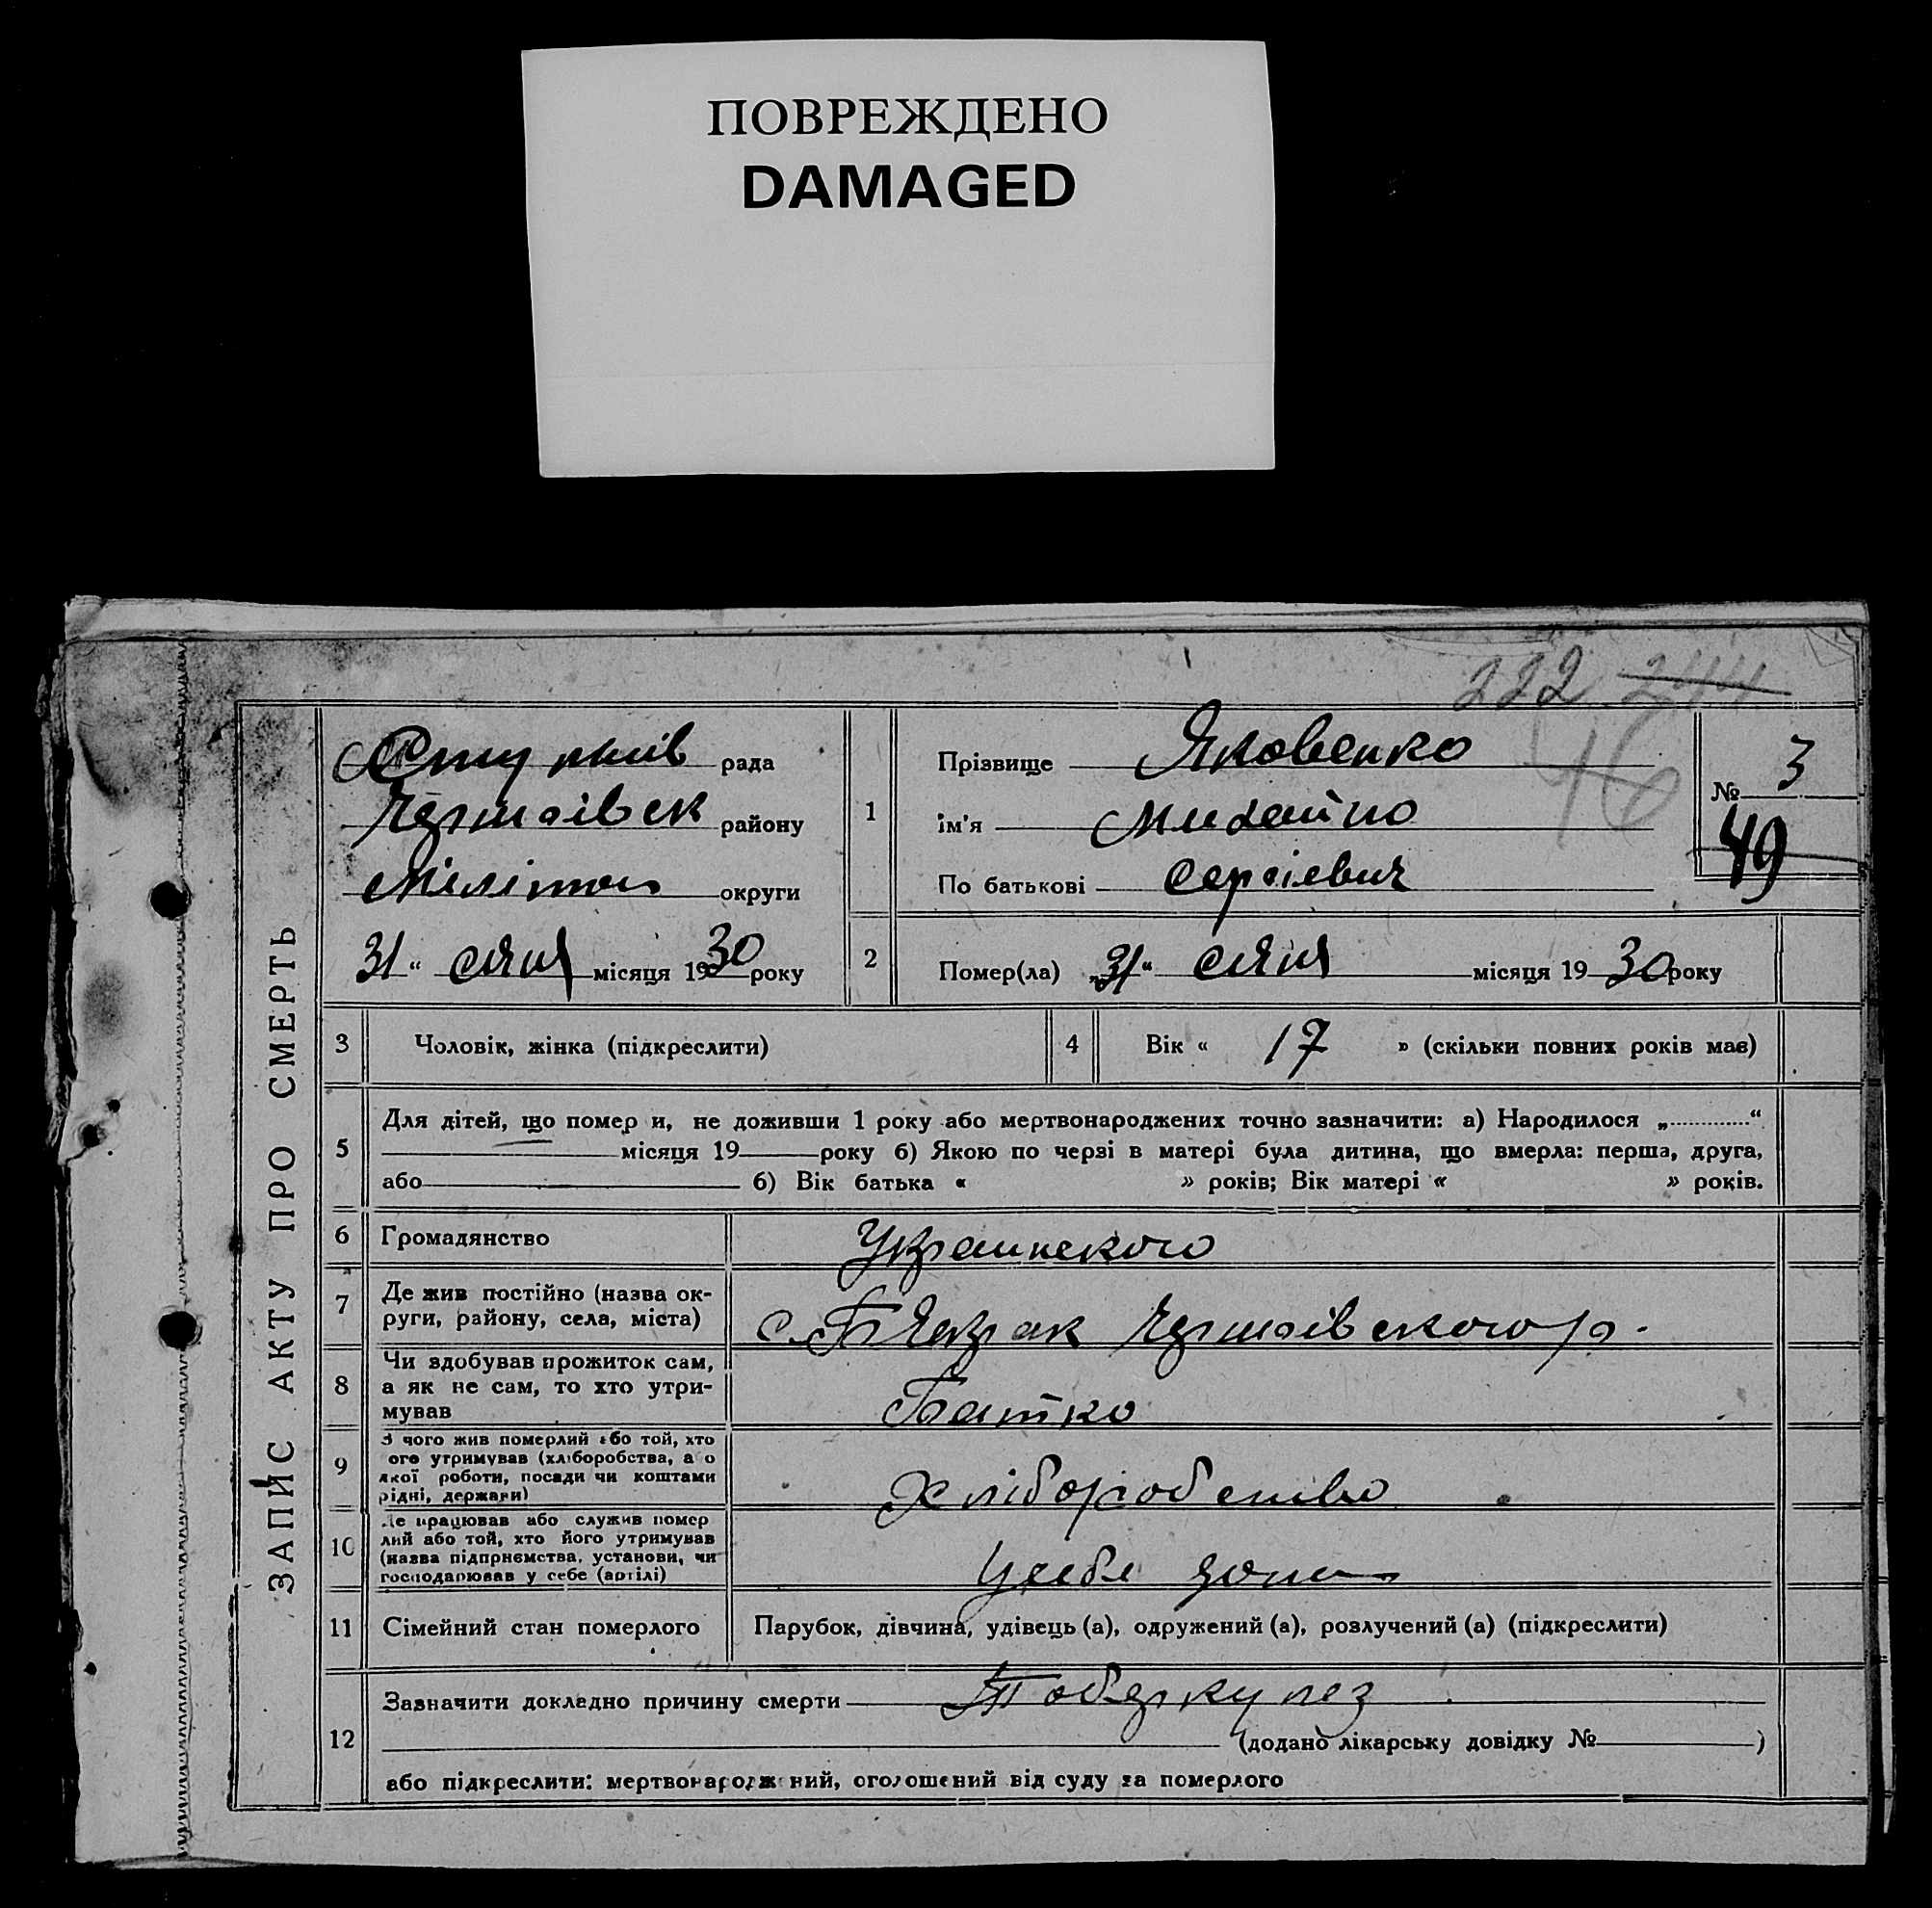 ПОВРЕЖДЕНО
DAMAGED
222 244
46
ЗАПИС АКТУ ПРО СМЕРТЬ
рада
району
округи
31 " січня місяця 1930 року
1
Прізвище Яковенко
ім'я Михайло
По батькові Сергієвич
№ 3
49
2
Помер(ла) „31“ січня місяця 1930 року
3 Чоловік, жінка (підкреслити)
4 Вік « 17 » (скільки повних років має)
5 Для дітей, що помер и, не доживши 1 року або мертвонароджених точно зазначити: а) Народилося „ “
місяця 19 року б) Якою по черзі в матері була дитина, що вмерла: перша, друга,
або б) Вік батька « » років; Вік матері « » років.
6 Громадянство Украинского
7 Де жив постійно (назва ок-
руги, району, села, міста)
с.
8 Чи здобував прожиток сам,
а як не сам, то хто утри-
мував
Батько
9 З чого жив померлий або той, хто
ого утримував (хліборобства, а о
якої роботи, посади чи коштами
рідні, держави)
Хліборобство
10 Де працював або служив помер
лий або той, хто його утримував
(назва підприємства, установи, чи
господарював у себе (артілі)
У себе дома
11 Сімейний стан померлого Парубок, дівчина, удівець (а), одружений (а), розлучений (а) (підкреслити)
12 Зазначити докладно причину смерти Тоберкулез
(додано лікарську довідку № )
або підкреслити: мертвонароджений, оголошений від суду за померлого